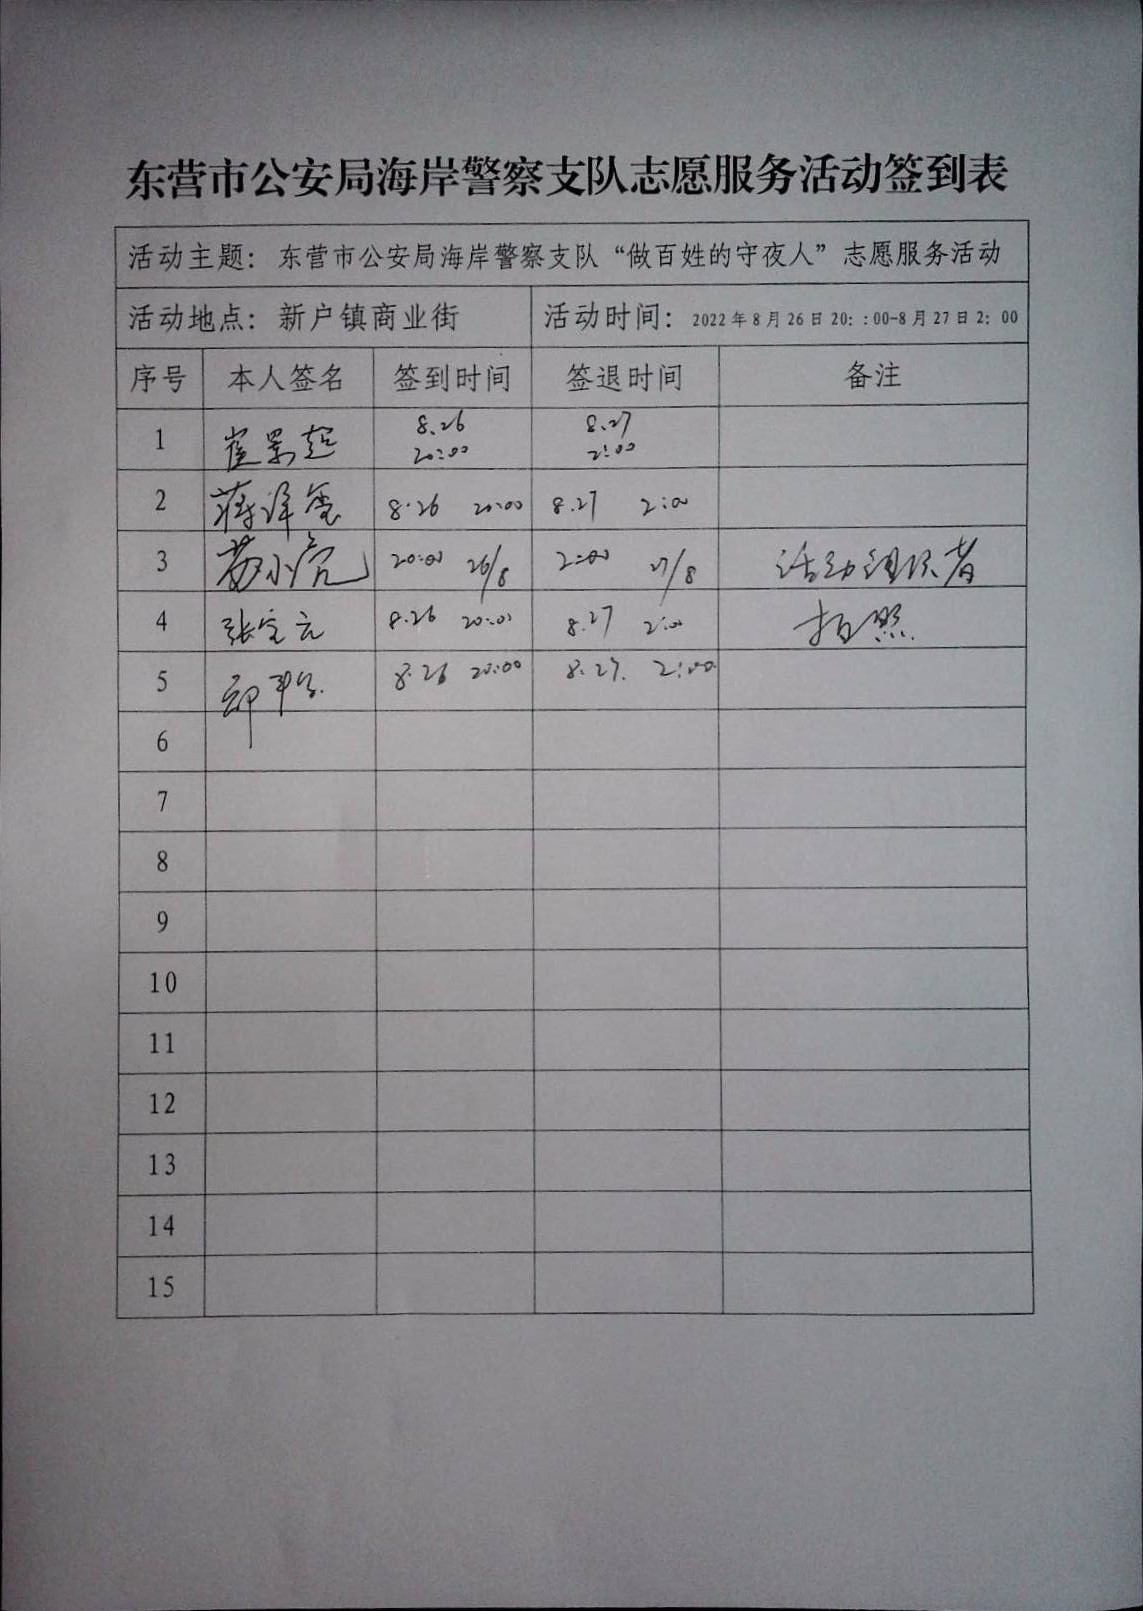 东营市公安局海岸警察支队志愿服务活动签到表
活动主题：东营市公安局海岸警察支队“做百姓的守夜人”志愿服务活动
活动地点：新户镇商业街 活动时间：2022年8月26日20：:00-8月27日2：00
序号 本人签名 签到时间 签退时间 备注
1 崔景超 8.26 20:00 8.27 2:00
2 蒋泽 8.26 20:00 8.27 2:00
3 苏小亮 20:00 26/8 2:00 27/8 活动组织者
4 张宝元 8.26 20:00 8.27 2:00 拍照
5 8.26 20:00 8.27. 2:00
6
7
8
9
10
11
12
13
14
15